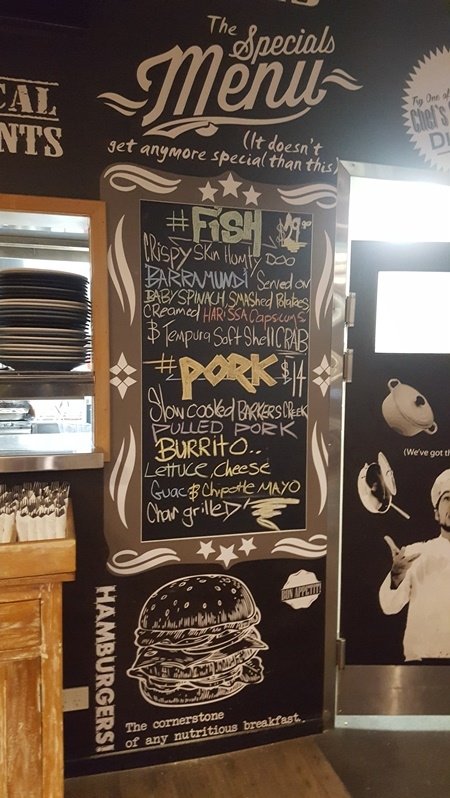 The Specials
Menu
(It doesn't
get anymore special than this)
CAL
NTS
Try One of
Chef's
DI
#FiSH
CRispy Skin Humpty DOO
BARRAMUNDi Served on
BABY SPINACH, SMAShed Potatoes
CREamed HARISSA Capsicums
& Tempura Soft Shell CRAB
#PORK $14
Slow cooked BARKERS CREEK
PULLED PORK
BURRITO..
Lettuce, Cheese
Guac & Chipotle MAYO
Char grilled
(We've got th
BON APPETIT
HAMBURGERS!
The cornerstone
of any nutritious breakfast.